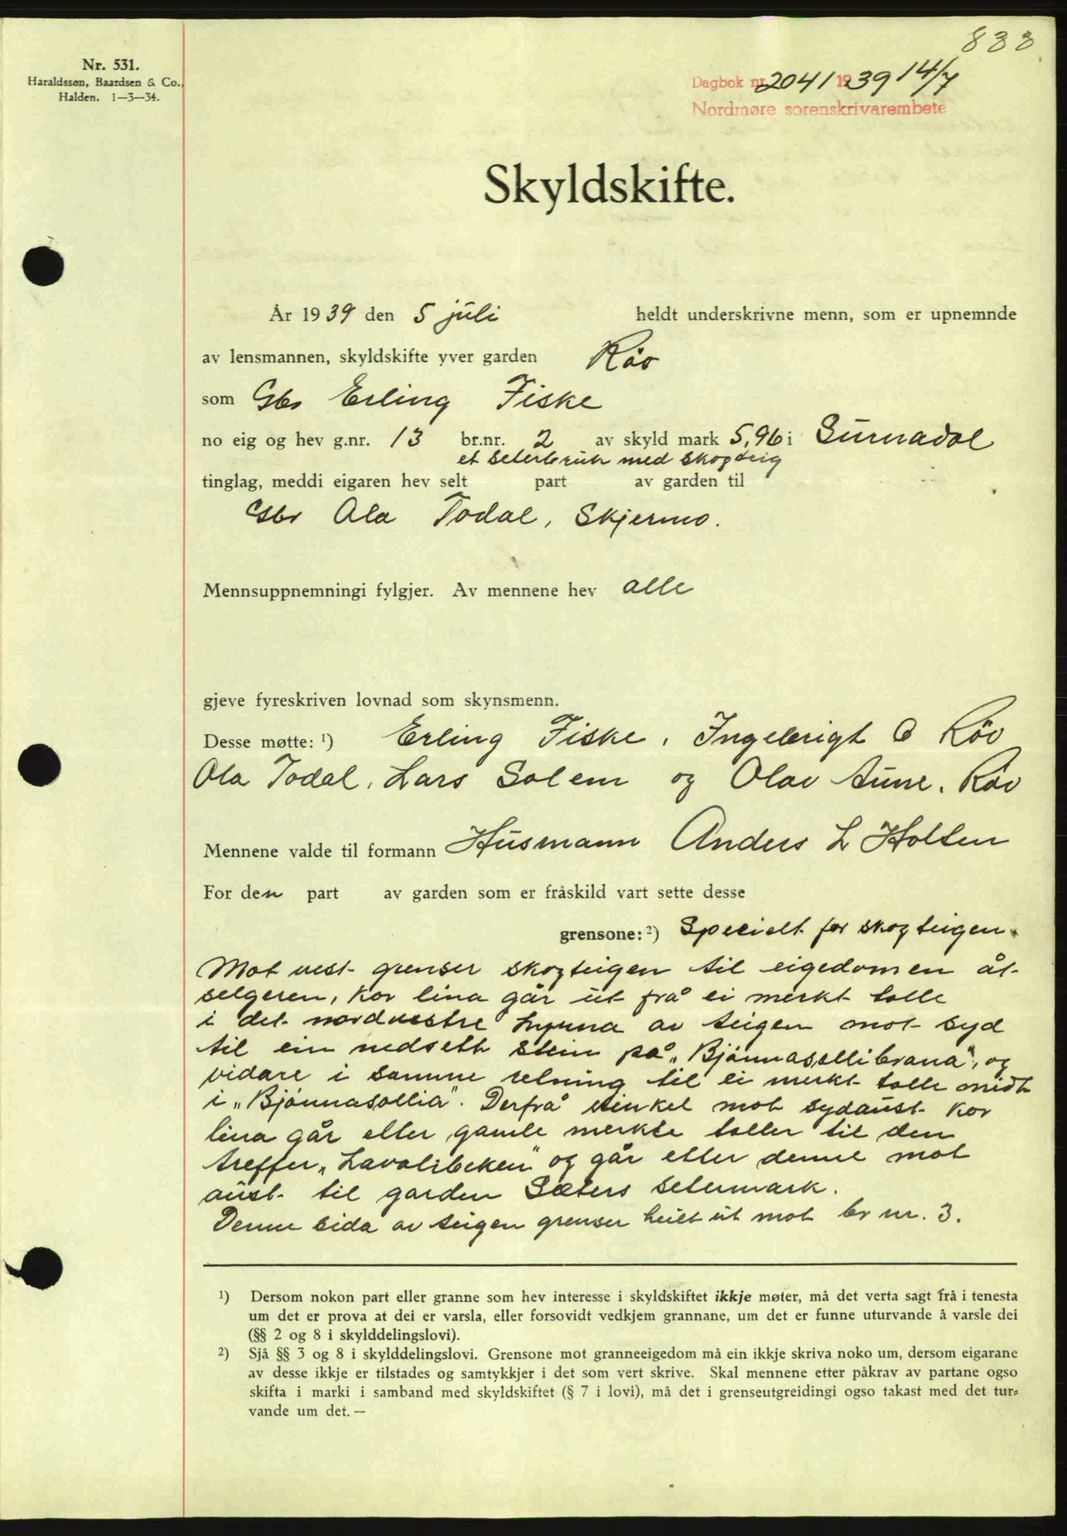 833
Nr. 531.
Haraldssøn, Baardsen & Co.,
Halden. 1—3—34.
Dagbok nr. 2041 1939 14/7
Nordmøre sorenskrivarembete
Skyldskifte.
År 1939 den 5 juli heldt underskrivne menn, som er upnemnde
av lensmannen, skyldskifte yver garden Röv
som Gbr Erling Fiske
no eig og hev g.nr. 13 br.nr. 2 av skyld mark 5,96 i Surnadal
et seterbruk med skogteig
tinglag, meddi eigaren hev selt part av garden til
Gbr Ola Todal, Skjermo.
Mennsuppnemningi fylgjer. Av mennene hev alle
gjeve fyreskriven lovnad som skynsmenn.
Desse møtte: ¹) Erling Fiske, Ingebrigt O Röv
Ola Todal, Lars Solem og Olav Aune, Röv
Mennene valde til formann Husmann Anders L Holten
For den part av garden som er fråskild vart sette desse
grensone: ²) Specielt for skogteigen.
Mot vest grenser skogteigen til eigedomen åt
selgeren, kor lina går ut frå ei merkt tolle
i det nordvestre hyrna av teigen mot syd
til ein nedsett stein på „Bjönnasollibrana", og
vidare i samme retning til ei merkt tolle midt
i „Bjönnasollia". Derfrå vinkel mot sydaust kor
lina går etter gamle merkte toller til den
treffer „Lavalibekken" og går etter denne mot
aust til garden Sæters setermark.
Denne sida av teigen grenser heilt ut mot br nr. 3.
¹) Dersom nokon part eller granne som hev interesse i skyldskiftet ikkje møter, må det verta sagt frå i tenesta
um det er prova at dei er varsla, eller forsovidt vedkjem grannane, um det er funne uturvande å varsle dei
(§§ 2 og 8 i skylddelingslovi).
²) Sjå §§ 3 og 8 i skylddelingslovi. Grensone mot granneeigedom må ein ikkje skriva noko um, dersom eigarane
av desse ikkje er tilstades og samtykkjer i det som vert skrive. Skal mennene etter påkrav av partane ogso
skifta i marki i samband med skyldskiftet (§ 7 i lovi), må det i grenseutgreidingi ogso takast med det tur-
vande um det. —